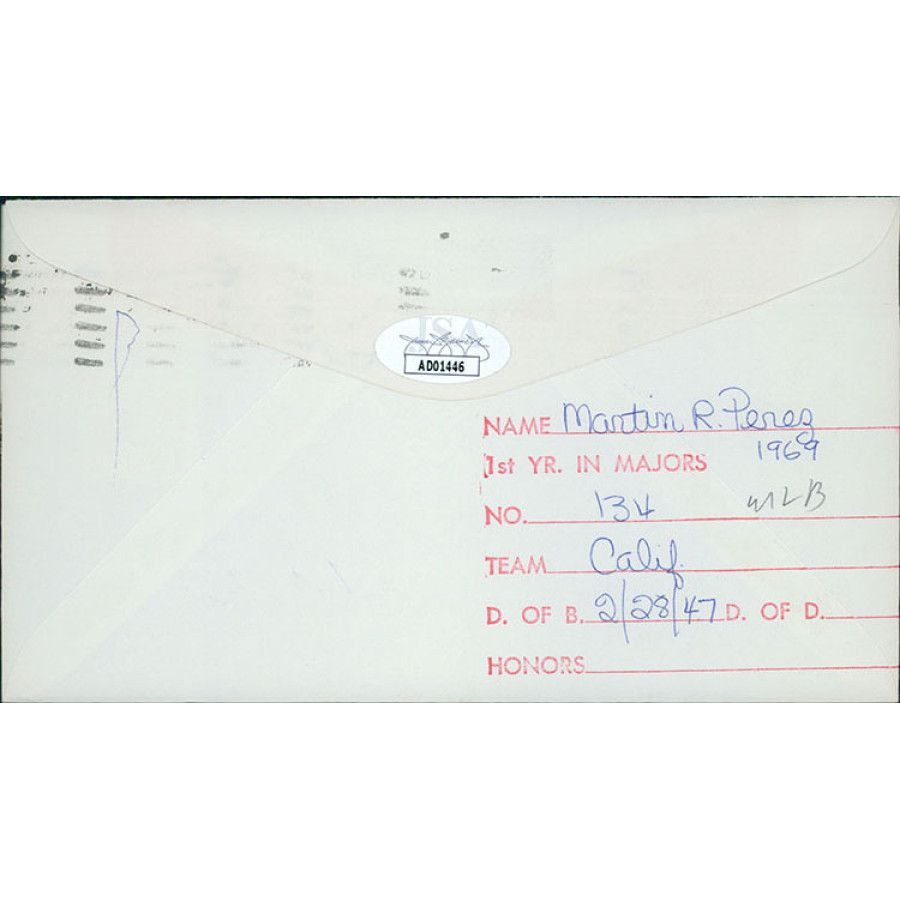 JSA
AD01446
NAME Martin R. Perez
1st YR. IN MAJORS 1969
NO. 134 MLB
TEAM Calif.
D. OF B. 2/28/47 D. OF D.
HONORS